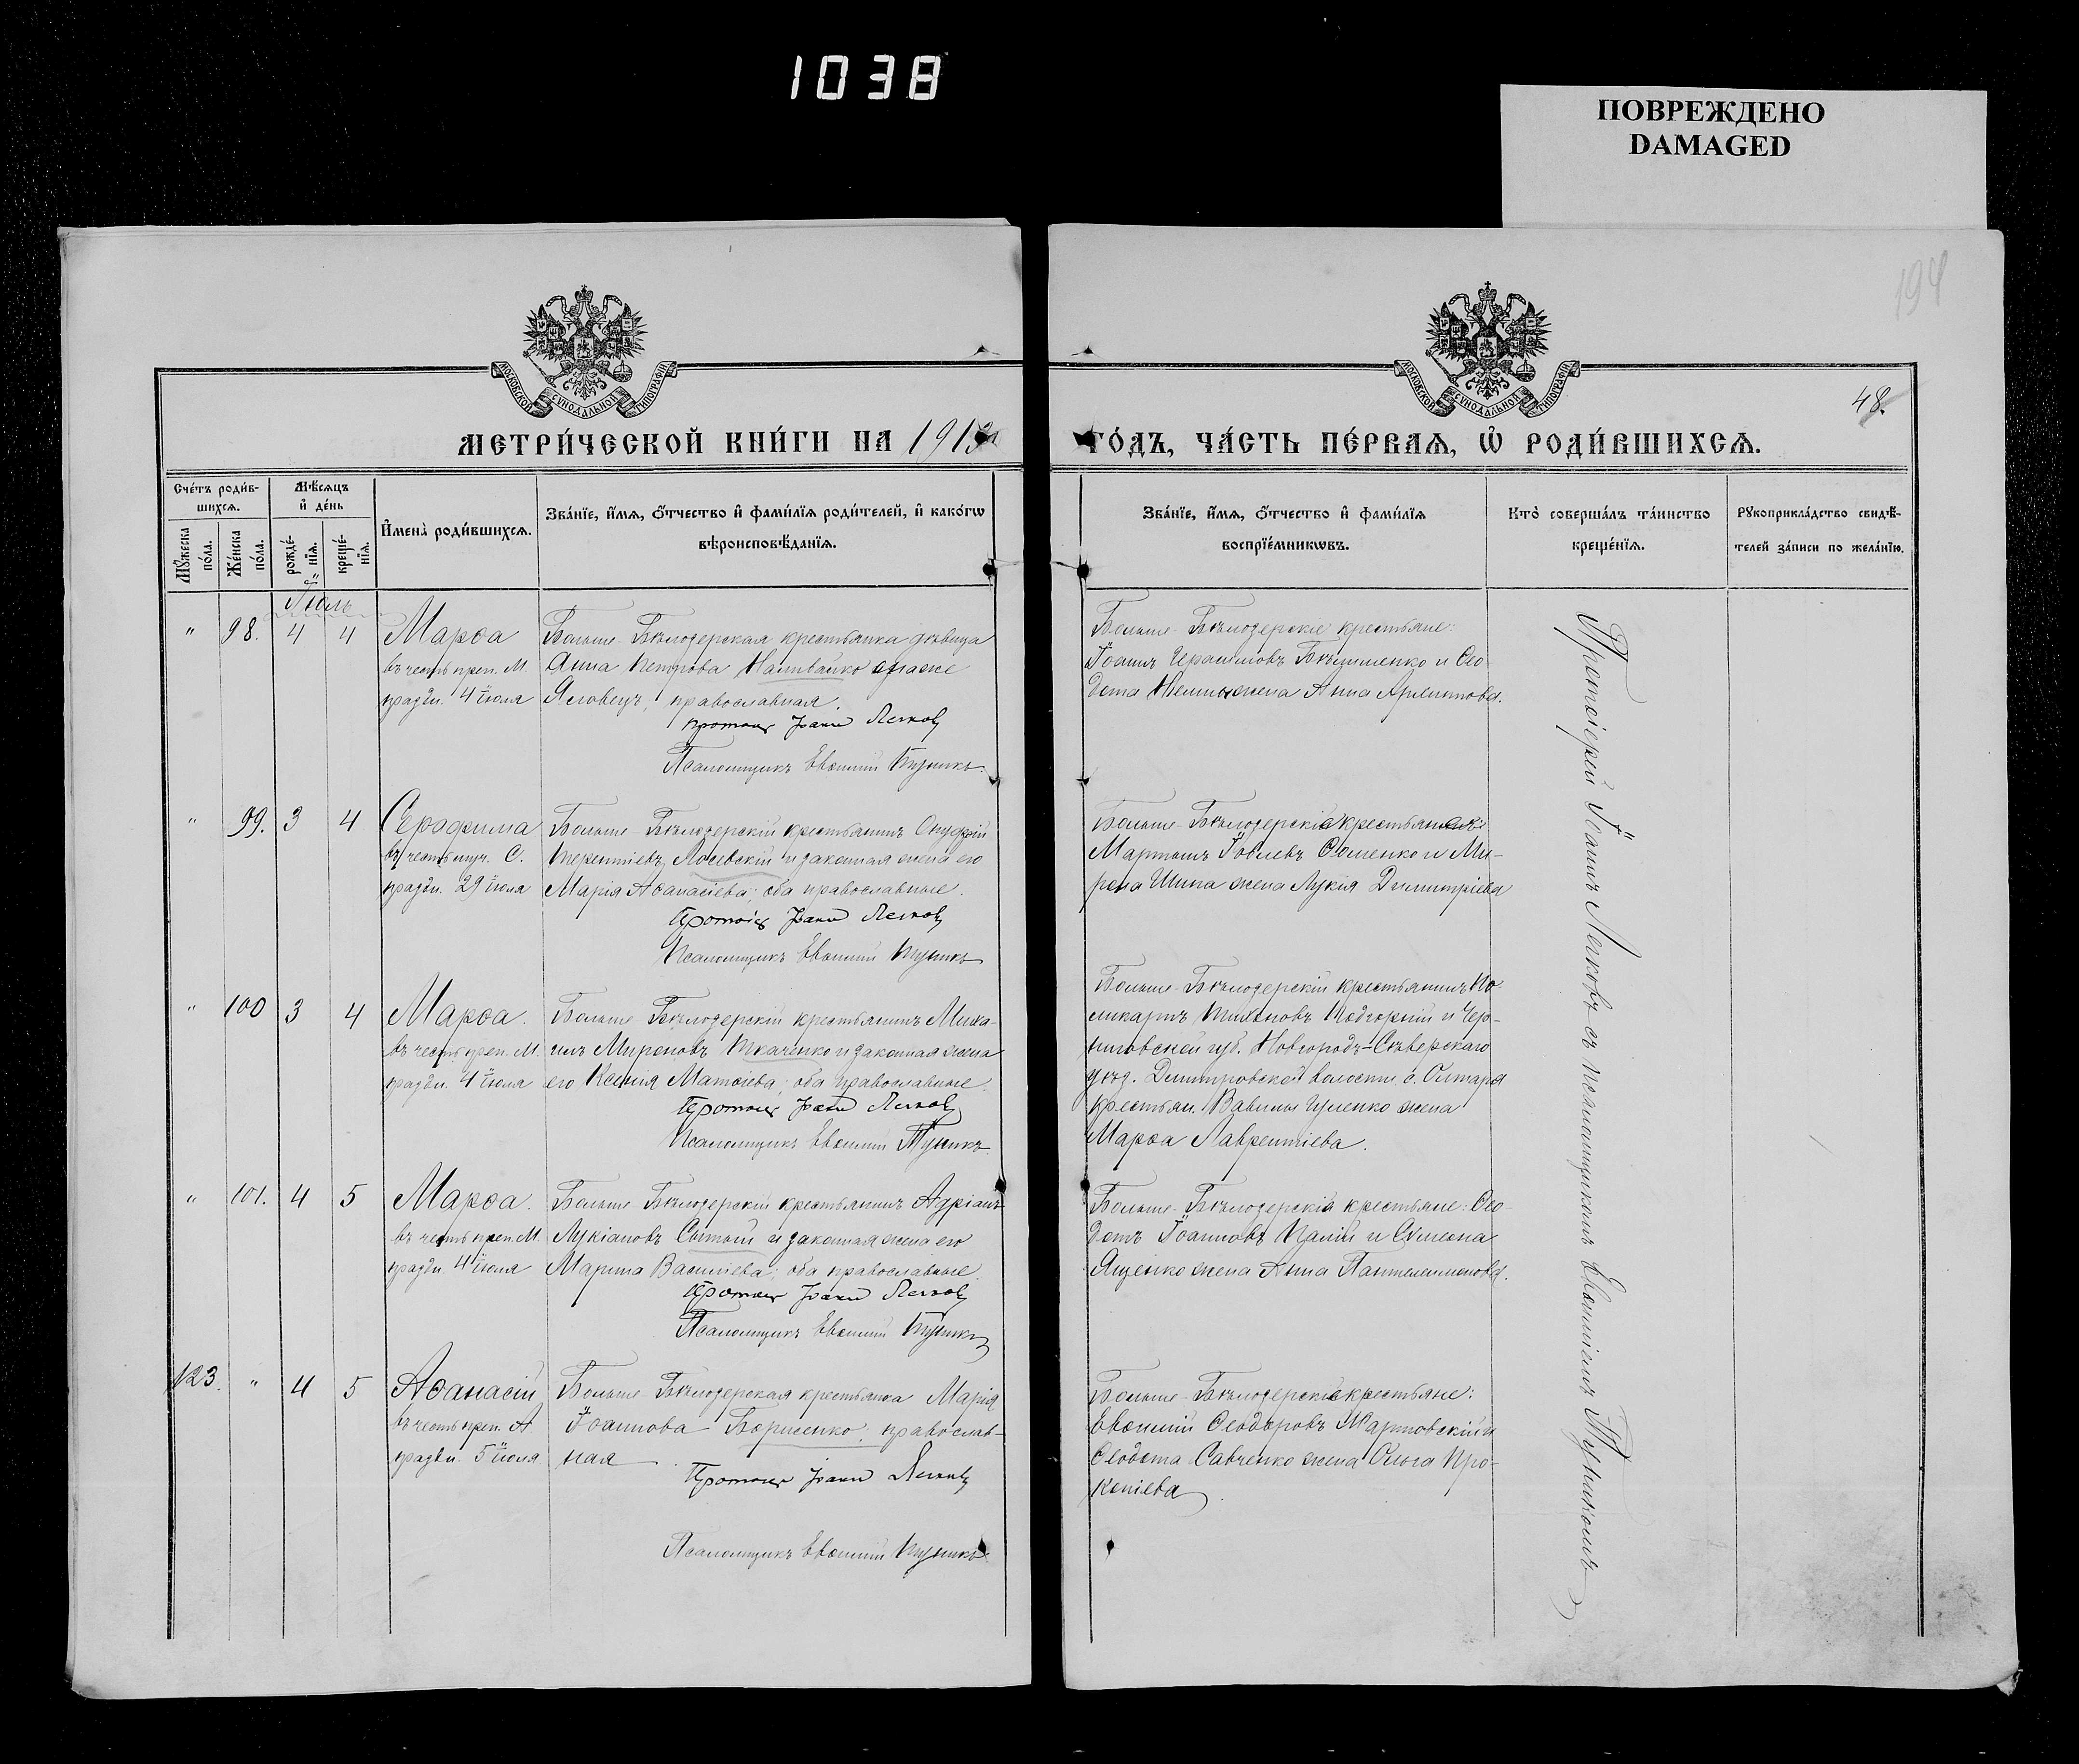 1038
ПОВРЕЖДЕНО
DAMAGED
194
МОСКОВСКОЙ СУНОДАЛЬНОЙ ТИПОГРАФІИ
МОСКОВСКОЙ СУНОДАЛЬНОЙ ТИПОГРАФІИ
48.
МЕТРИ́ЧЕСКОЙ КНИ́ГИ НА 1913
ГО́ДЪ, ЧА́СТЬ ПЕ́РВАѦ, Ѡ҆ РОДИ́ВШИХСѦ.
Сче́тъ роди́в-
шихсѧ.
Мꙋ́жеска по́ла.
Же́нска по́ла.
Мѣ́сѧцъ
и҆ де́нь
рожде́-нїѧ.
креще́-нїѧ.
И҆мена̀ роди́вшихсѧ.
Зва́нїе, и҆́мѧ, ѻ҆́тчество и҆ фами́лїѧ роди́телей, и҆ како́гѡ
вѣроисповѣ́данїѧ.
Зва́нїе, и҆́мѧ, ѻ҆́тчество и҆ фами́лїѧ
воспрїе́мникѡвъ.
Кто̀ соверша́лъ та́инство
креще́нїѧ.
Рꙋкоприкла́дство свидѣ́-
телей за́писи по жела́нїю.
Іюль
" 98. 4 4 Марѳа
въ честь преп. М.
праздн. 4 іюля
Больше-Бѣлозерская крестьянка дѣвица
Анна Петрова Наливайко она же
Яловецъ, православная.
Протоіер Іоаннъ Легковъ
Псаломщикъ Евѳимій Пуникъ.
Больше-Бѣлозерскіе крестьяне:
Іоаннъ Герасимовъ Бѣщиленко и Ѳео
дота жена Анна Архиппова.
" 99. 3 4 Серафима
въ честь муч. С.
праздн. 29 іюля
Больше-Бѣлозерскій крестьянинъ Онуфрій
Терентіевъ Лосевскій и законная жена его
Марія Аѳанасіева; оба православные.
Протоіер Іоаннъ Легковъ
Псаломщикъ Евѳимій Пуникъ
Больше-Бѣлозерскіе крестьяне:
Мартынъ Іовлевъ Ѳоменко и Ми-
рона Шипа жена Лукія Димитріева
" 100 3 4 Марѳа.
въ честь преп. М.
праздн. 4 іюля
Больше-Бѣлозерскій крестьянинъ Миха-
илъ Мироновъ Ткаченко и законная жена
его Ксенія Матѳіева; оба православные.
Протоіер Іоаннъ Легковъ
Псаломщикъ Евѳимій Пуникъ
Больше-Бѣлозерскій крестьянинъ По
ликарпъ Тихоновъ Подгорній и Чер-
ниговской губ. Новгородъ-Сѣверскаго
уѣзд. Димитровской волости с. Олтаря
крестьян. Вавилы Гуленко жена
Марѳа Лаврентіева.
" 101. 4 5 Марѳа.
въ честь преп. М.
праздн. 4 іюля
Больше-Бѣлозерскій крестьянинъ Адріанъ
Лукіановъ Сытый и законная жена его
Марина Василіева; оба православные.
Протоіер Іоаннъ Легковъ
Псаломщикъ Евѳимій Пуникъ
Больше-Бѣлозерскіе крестьяне: Ѳео-
дотъ Іоанновъ Палій и Сѵмеона
Ященко жена Анна Пантелеимонова.
123. " 4 5 Аѳанасій
въ честь преп. А.
праздн. 5 іюля
Больше-Бѣлозерская крестьянка Марія
Іоаннова Борисенко; православ-
ная
Протоіер Іоаннъ Легковъ
Псаломщикъ Евѳимій Пуникъ
Больше-Бѣлозерскіе крестьяне:
Евѳимій Ѳеодоровъ Мартовскій и
Ѳеодота Савченко жена Ольга Про-
копіева.
Протоіерей Іоаннъ Легковъ съ псаломщикомъ Евѳиміемъ Пуникомъ